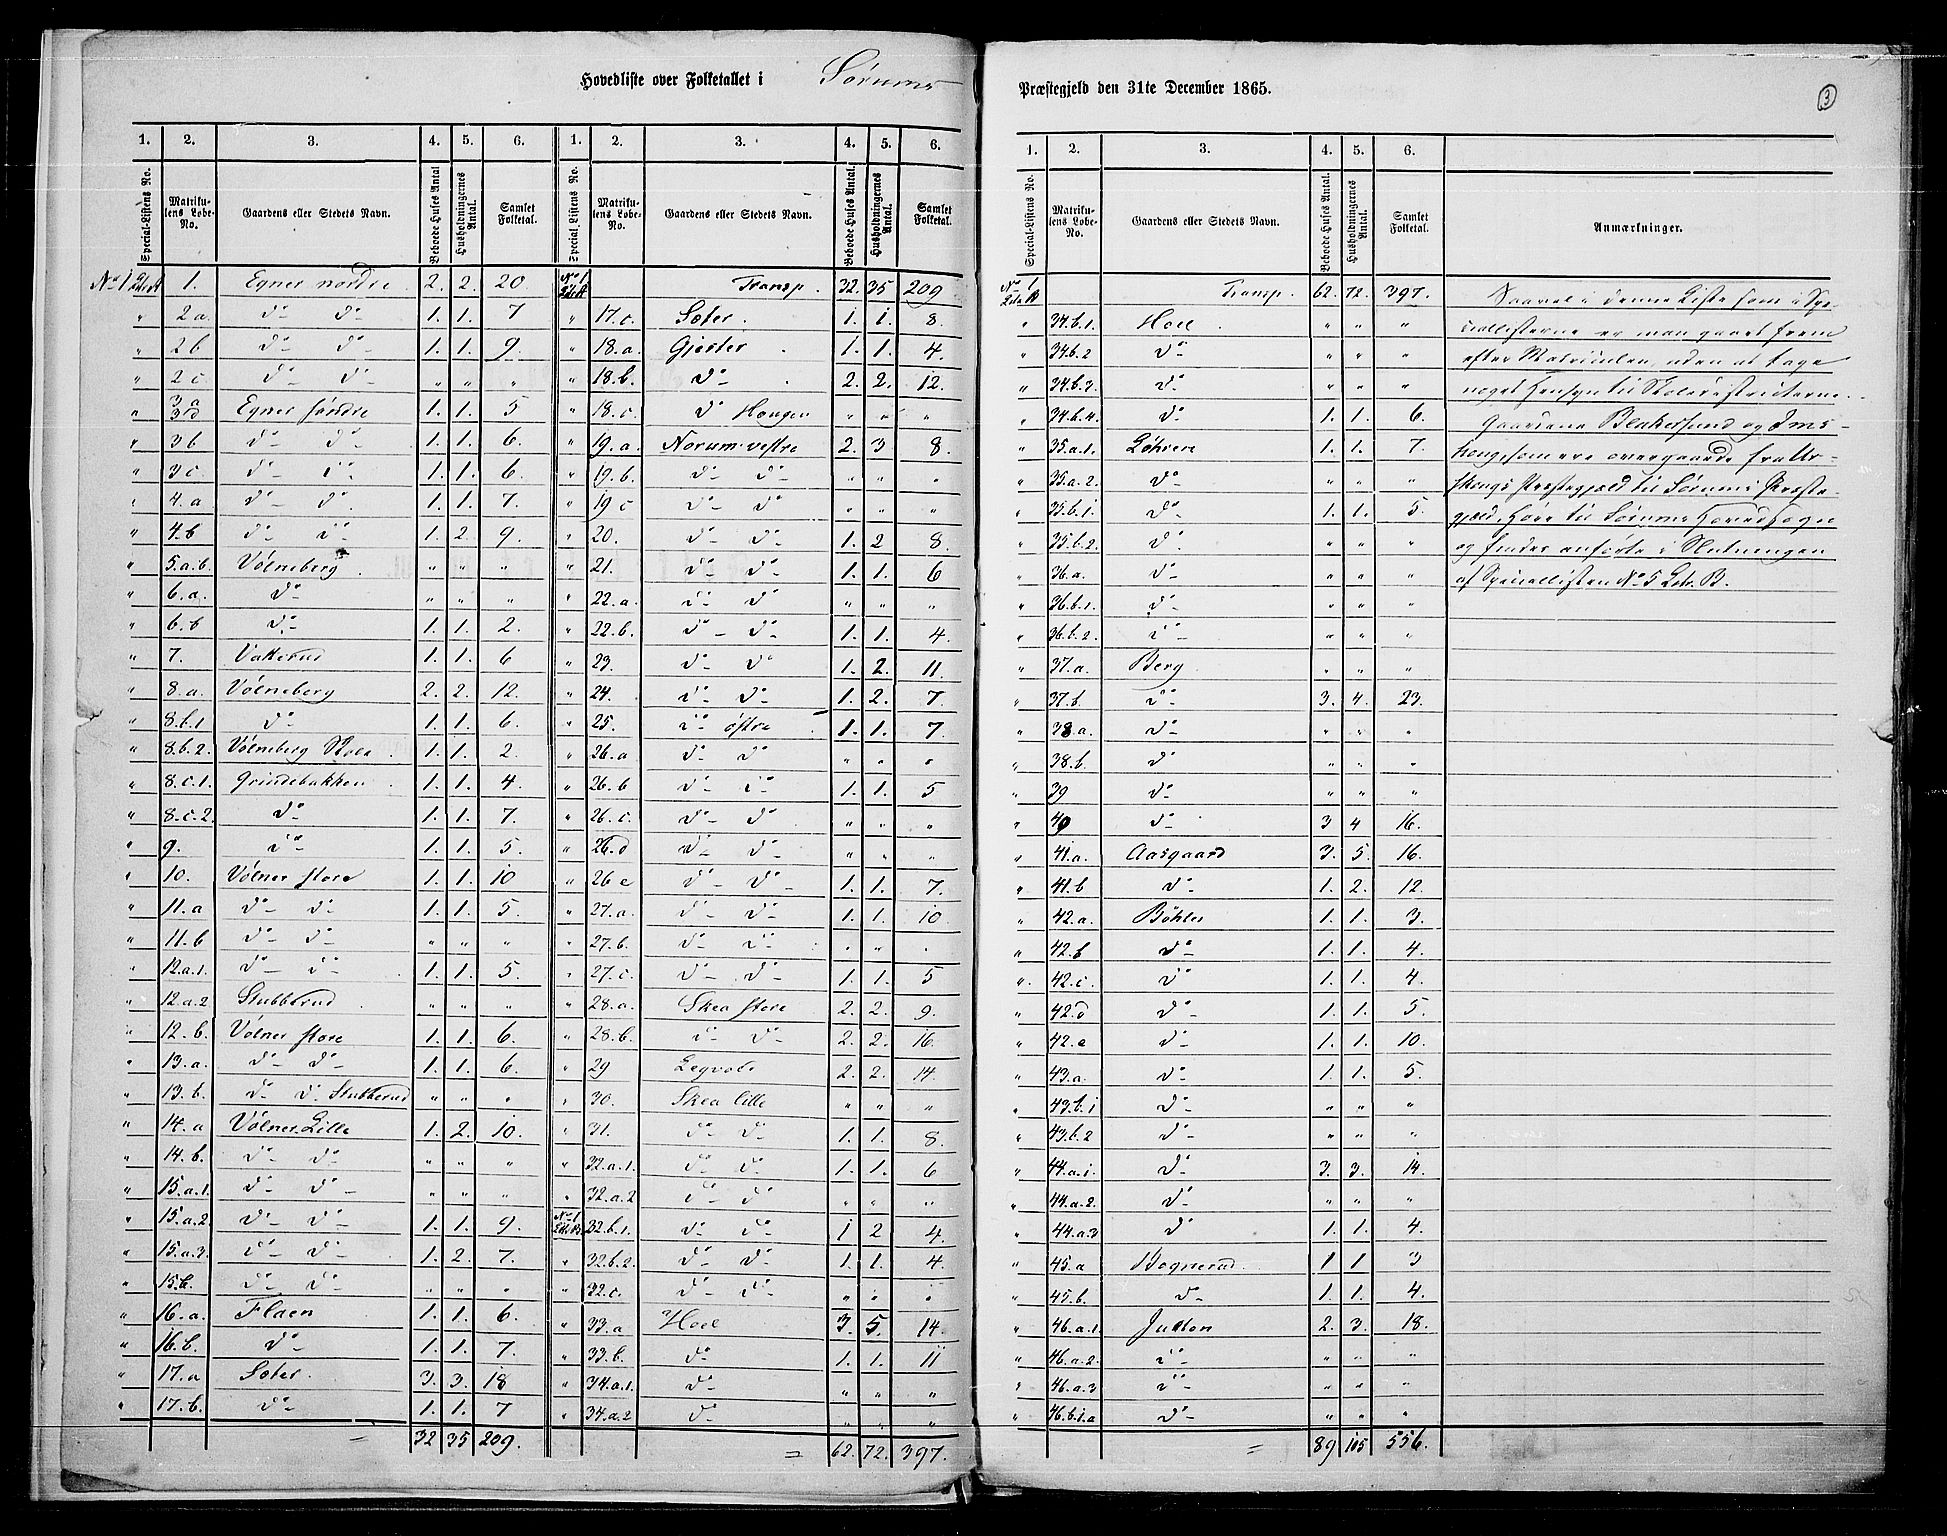 Hovedliste over Folketallet i Sørums
1. 2. 3. 4. 5. 6. 1. 2. 3. 4. 5. 6.
Special-Listens No. Matrikulens Løbe-No. Gaardens eller Stedets Navn. Beboede Huses Antal Husholdningernes Antal. Samlet Folketal. Special-Listens No. Matrikulens Løbe-No. Gaardens eller Stedets Navn. Beboede Huses Antal. Husholdningernes Antal. Samlet Folketal.
No 1 Litr A 1. Egner nordre 2. 2. 20
" 2a. do do 1. 1. 7
" 2b do do 1. 1. 9.
" 2c do do " " "
" 3a 3d Egner søndre 1. 1. 5
" 3b do do 1. 1. 6.
" 3c do do 1. 1. 6
" 4.a do do 1. 1. 7.
" 4.b do do 1. 2. 9.
" 5.a.b. Vølneberg " " "
" 6.a. do " " "
" 6.b do 1. 1. 2.
" 7. Vakkerud 1. 1. 6
" 8.a. Vølneberg 2. 2. 12.
" 8.b.1 do 1. 1. 6.
" 8.b.2. Vølneberg Skole 1. 1. 2.
" 8.c.1. Grindebakken 1. 1. 4
" 8.c.2. do 1. 1. 7.
" 9. do 1. 1. 5.
" 10. Vølner store 1. 1. 10
" 11.a do do 1. 1. 5.
" 11.b do do " " "
" 12.a.1. do do 1. 1. 5.
" 12.a.2 Stubberud " " "
" 12.b. Vølner store 1. 1. 6.
" 13.a. do do 1. 1. 6.
" 13.b. do do Stubberud " " "
" 14.a Vølner Lille 1. 2. 10.
" 14.b. do do " " "
" 15.a.1. do do " " "
" 15.a.2. do do 1. 1. 9.
" 15.a.3. do do 1. 2. 7.
" 15.b. do do " " "
" 16.a. Flaen 1. 1. 6.
" 16.b. do 1. 1. 7.
" 17.a Sæter. 3. 3. 18
" 17.b. do 1. 1. 7
= 32 35 209.
No 1 Litr A Transp. 32. 35 209
" 17.c. Sæter. 1. 1. 8.
" 18.a. Gjester 1. 1. 4.
" 18.b. do 2. 2. 12.
" 18.c. do Haugen " " "
" 19.a. Norum vestre 2. 3 8.
" 19.b. do do " " "
" 19.c do do " " "
" 20. do do 1. 2 8.
" 21. do do 1. 1. 6
" 22.a. do do " " "
" 22.b. do do 1. 1. 4
" 23. do do 1. 2. 11.
" 24. do do 1. 2. 7.
" 25. do østre 1. 1. 7.
" 26.a do do " " "
" 26.b do do 1. 1. 5
" 26.c. do do " " "
" 26.d do do " " "
" 26 e do do 1. 1. 7.
" 27.a. do do 1. 1. 10
" 27.b. do do " " "
" 27.c. do do 1. 1. 5
" 28.a. Skea store 2. 2. 9.
" 28.b. do do 2. 2. 16.
" 29 2. 2. 14.
" 30. Skea lille " " "
" 31. do do 1. 1. 8.
" 32.a.1. do do 1. 1. 6
" 32.a.2 do do " " "
No 1 Litr B. 32.b.1. do do 1 2 4
" 32.b.2. do do 1. 1. 4.
" 32.c. do do " " "
" 33.a Hoel 3. 5. 14.
" 33.b. do 1. 1. 11
" 34.a.1. do " " "
" 34.a.2 do " " "
= 62. 72. 397.
Præstegjeld den 31te December 1865.
3
1. 2. 3. 4. 5. 6.
Special-Listens No. Matrikulens Løbe-No. Gaardens eller Stedets Navn. Beboede Huses Antal. Husholdningernes Antal. Samlet Folketal. Anmærkninger.
No 1 Litr B Transp. 62. 72. 397.
" 34.b.1. Hoel " " "
" 34.b.2 do " " "
" 34.b.3. do " " "
" 34.b.4. do 1. 1. 6.
" 35.a.1. Løhren 1. 1. 7.
" 35.a.2. do " " "
" 35.b.1. do 1. 1. 5.
" 35.b.2. do " " "
" 36.a. do " " "
" 36.b.1. do " " "
" 36.b.2. do " " "
" 37.a. Berg " " "
" 37.b. do 3. 4. 23.
" 38.a. do " " "
" 38.b. do " " "
" 39 do " " "
" 40 do 3 4 16.
" 41.a. Aasgaard 3. 5. 16.
" 41.b do 1. 2. 12.
" 42.a. Bøhler 1. 1. 3.
" 42.b do 1. 1. 4.
" 42.c. do 1. 1. 4
" 42.d do 1. 1. 5.
" 42.e do 1. 1. 10.
" 43.a. do 1. 1. 5.
" 43.b.1 do " " "
" 43.b.2 do " " "
" 44.a.1. do 3. 3. 14.
" 44.a.2. do " " "
" 44.a.3 do 1. 1. 4.
" 45.a Bognerud 1 1 3
" 45.b. do 1. 1. 4.
" 46.a.1. 2. 3. 18.
" 46.a.2. do " " "
" 46.a.3 do " " "
" 46.b.1.a do " " "
= 89 105 556.
Saavel i denne Liste som i Spe-
ciallisterne er man gaaet frem
efter Matriculen, uden at tage
noget Hensyn til Skoledistricterne.
Gaardene Blakersund og Ims-
haug som ere overgaaede fra Ur-
skougs Præstegjæld til Sørums Præste-
gjæld, høre til Sørums Hovedsogn
og findes anførte i Slutningen
af Speciallisten No 5 Litr. B.